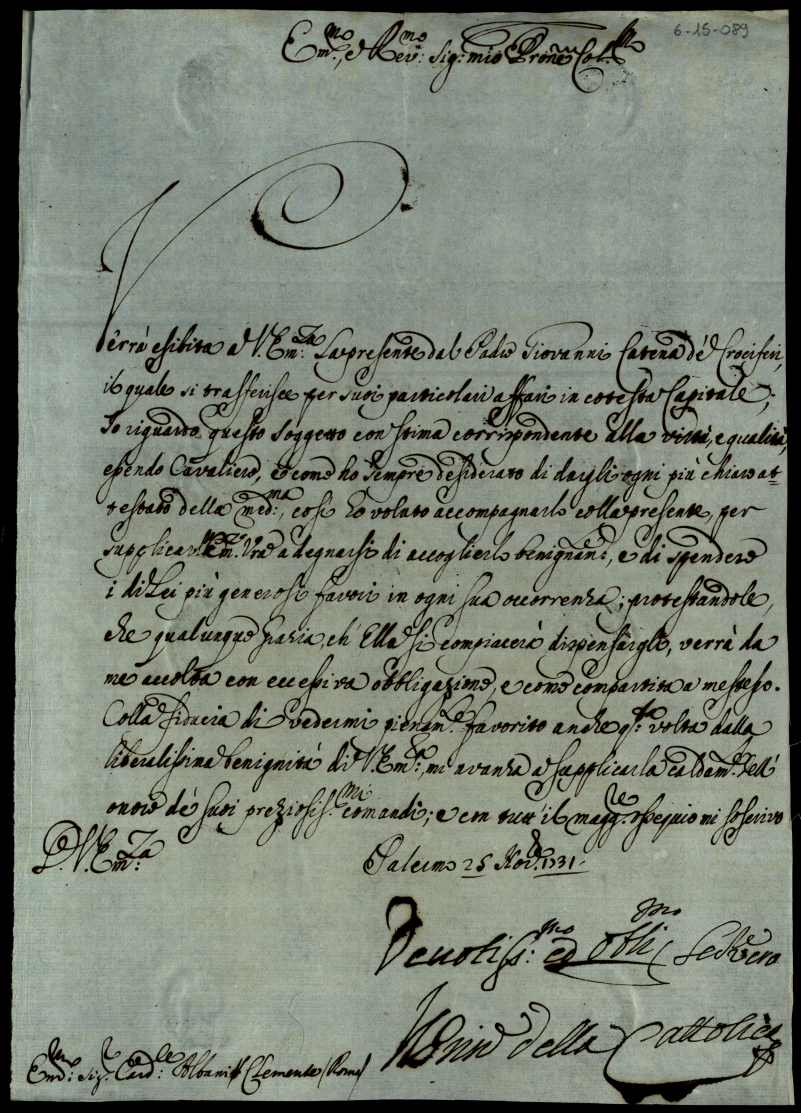 6-15-089
Em.mo, e Rev.mo Sig: mio P'rone Col.mo
Verrà esibita a V. Em.za La presente dal Padre Giovanni Catena de' Crociferi,
il quale si trasferisce per suoi particolari affari in cotesta Capitale;
Io riguardo questo soggetto con stima corrispondente alla virtù, e qualità,
essendo Cavaliere, e come ho sempre desiderato di dargli ogni più chiaro at=
testato della med.ma, così ho voluto accompagnarlo colla presente, per
supplicar V. Em.za Vra a degnarsi di accoglierlo benignam.e, e di spendere
i di Lei più generosi favori in ogni sua occorrenza; protestandole,
che qualunque grazia, ch' Ella si compiacerà dispensargli, verrà da
me accolta con eccessiva obbligazione, e come compartita a me stesso.
Colla fiducia di vedermi pienam.e favorito anche q.ta volta dalla
liberalissima benignità di V. Em.za, mi avanzo a supplicarla caldam.e dell'
onore de' suoi preziosiss.mi comandi; e con tutt' il magg.re ossequio mi soscrivo
D. V. Em.za
Palermo 25 Nov.e 1731.
Devotiss.mo ed Obb.mo Se Vero
della Cattolica
Em.mo Sig.r Card.le Albani S. Clemente (Roma)